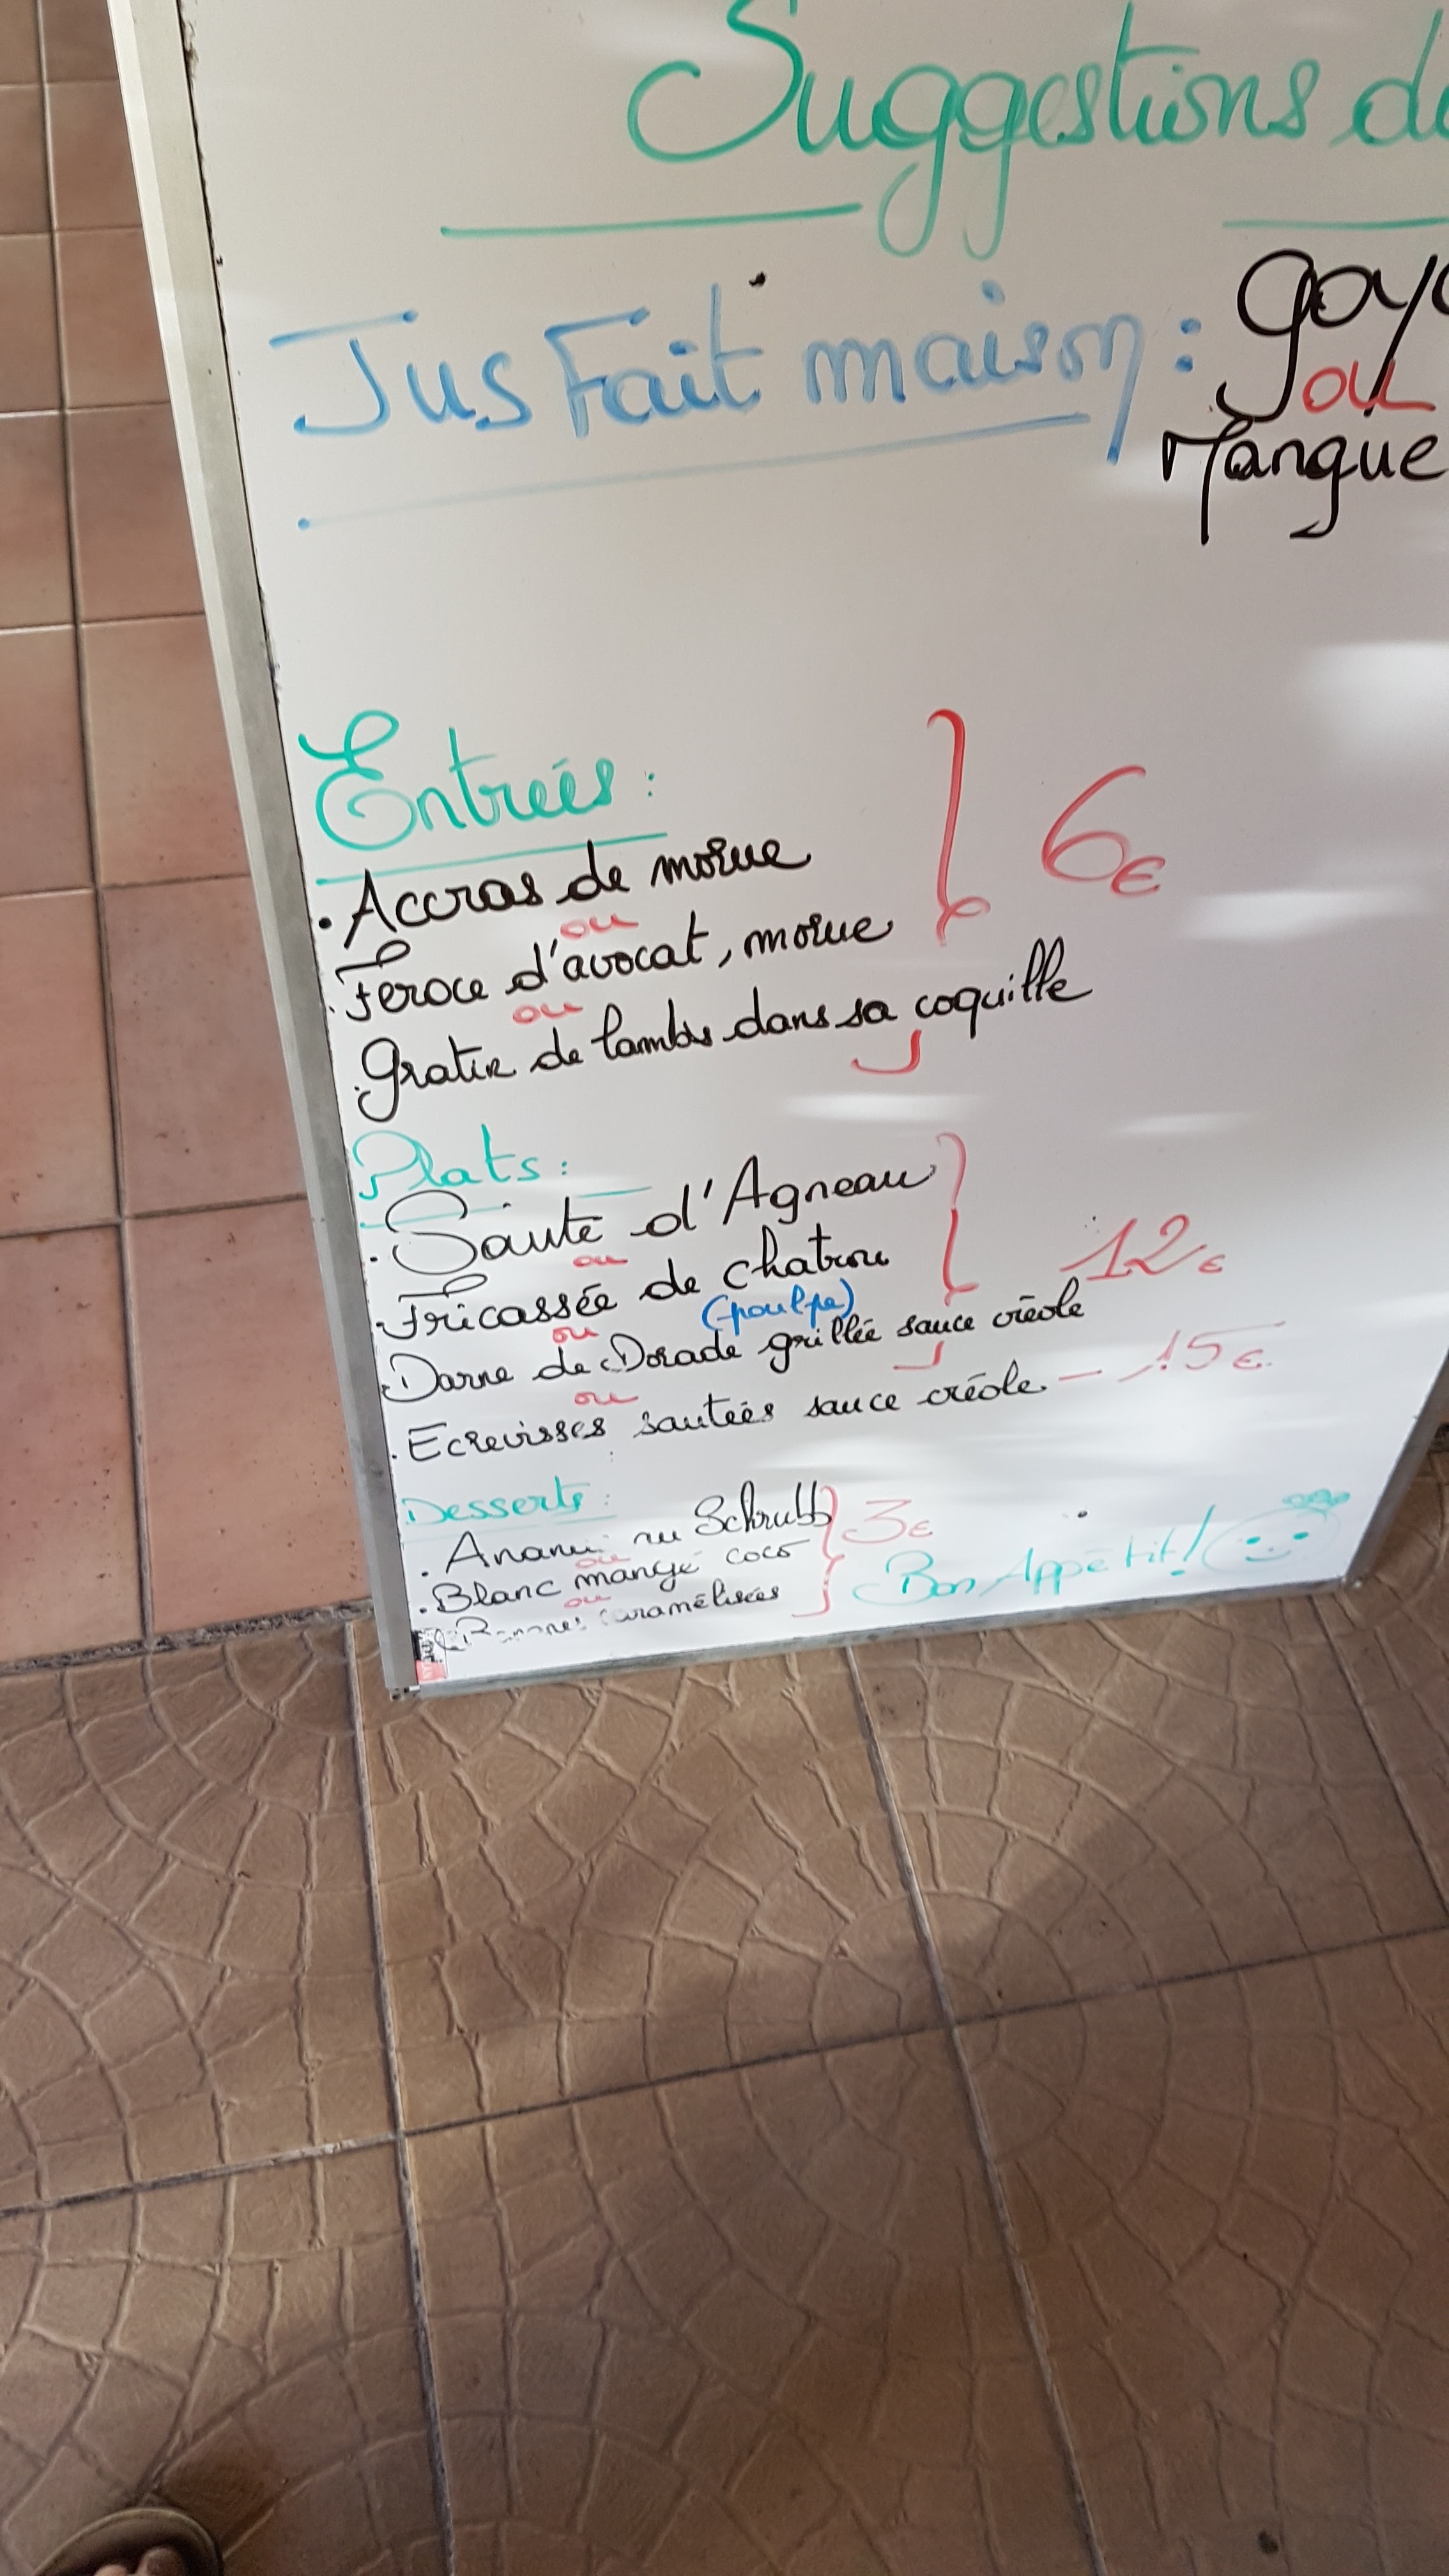 Suggestions d
Jus Fait maison :
Goya
ou
Mangue
Entreés :
6€
. Accras de morue
ou
. Feroce d'avocat, morue
ou
. Gratin de lambis dans sa coquille
Plats :
. Sauté d'Agneau
ou
. Fricassée de chatrou
12€
(poulpe)
ou
. Darne de Dorade grillée sauce créole
ou
. Ecrevisses sauteés sauce créole - 15€
Desserts :
. Ananas au Schrubb
3€
ou
. Blanc mangé coco
ou
Bananes caramélisées
Bon Appétit !